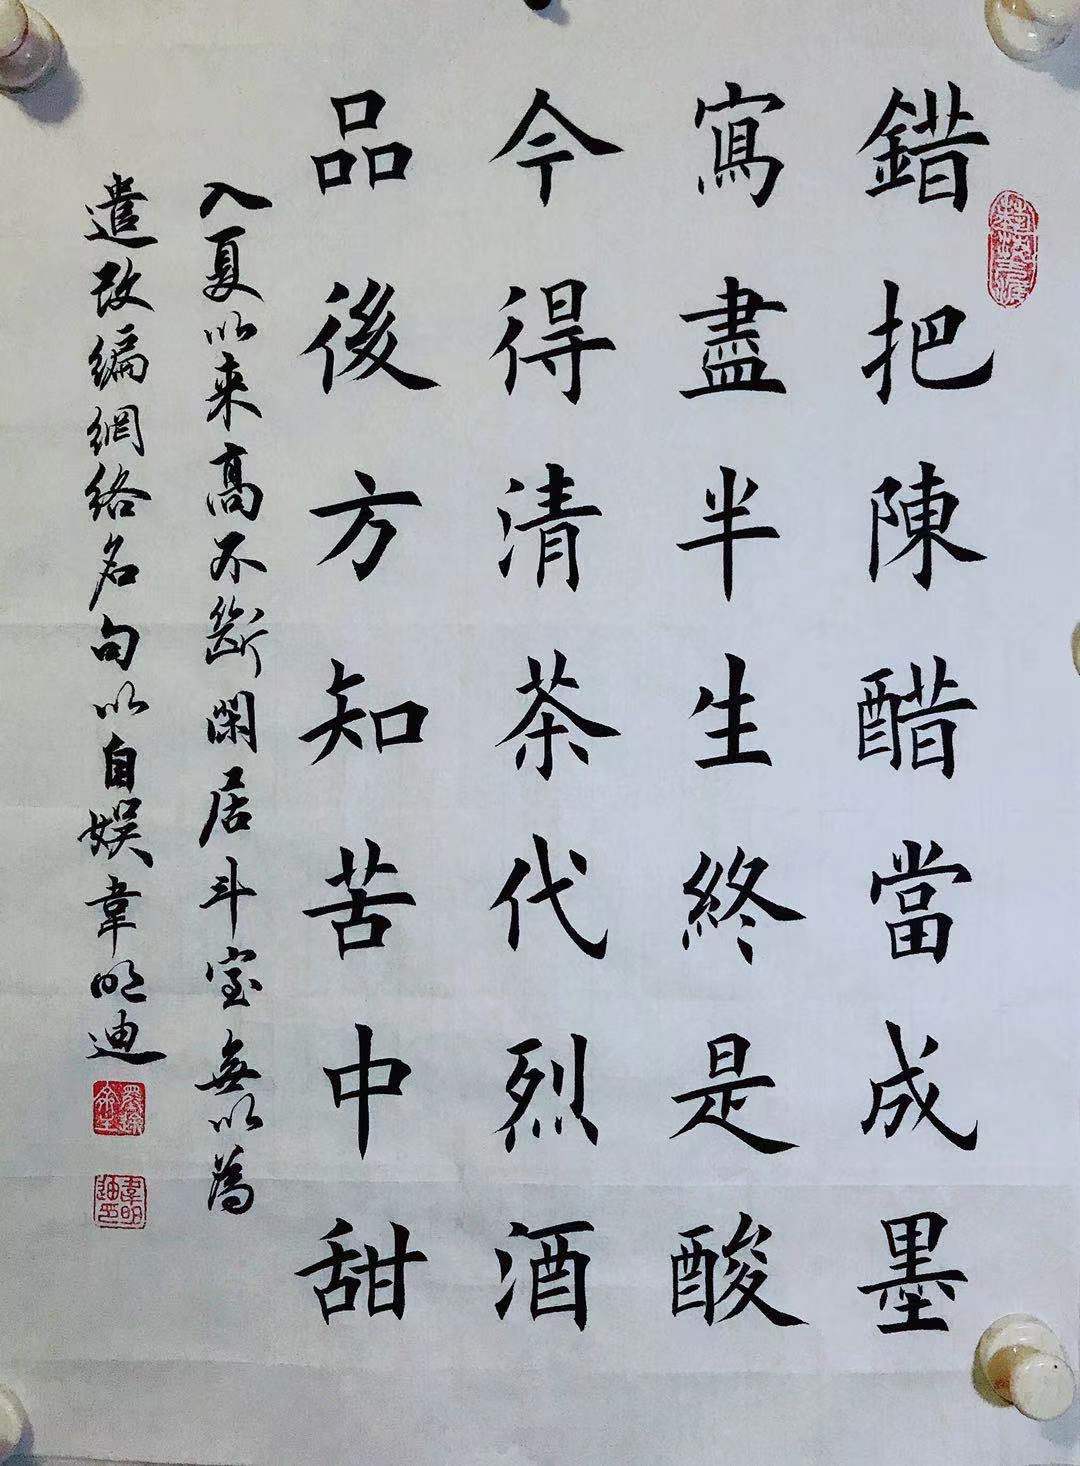 錯把陳醋當成墨
寫盡半生終是酸
今得清茶代烈酒
品後方知苦中甜
入夏以来高不斷閑居斗室無以為
遣改編網絡名句以自娱韋明迪
韋明迪印